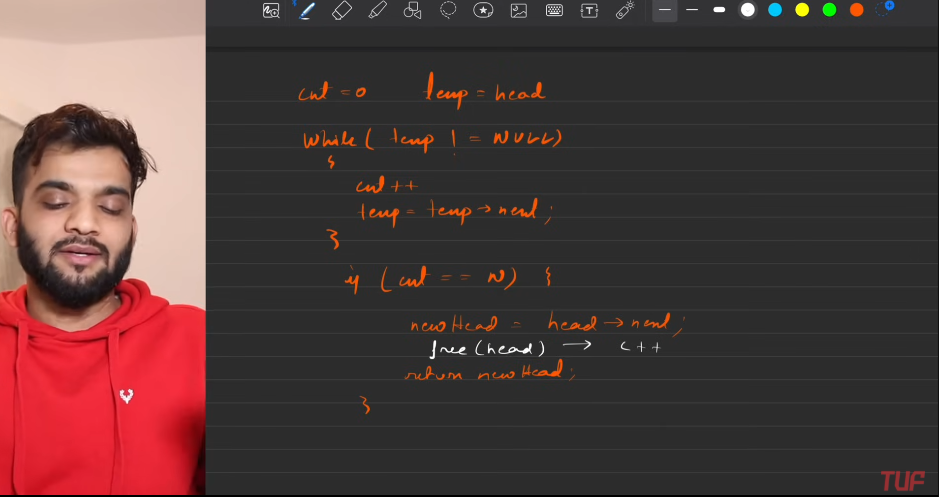 cnt = 0 temp = head
while( temp != NULL)
{
cnt ++
temp = temp → next;
}
if (cnt == N) {
newHead = head → next;
free(head) → C++
return newHead;
}
TUF
T